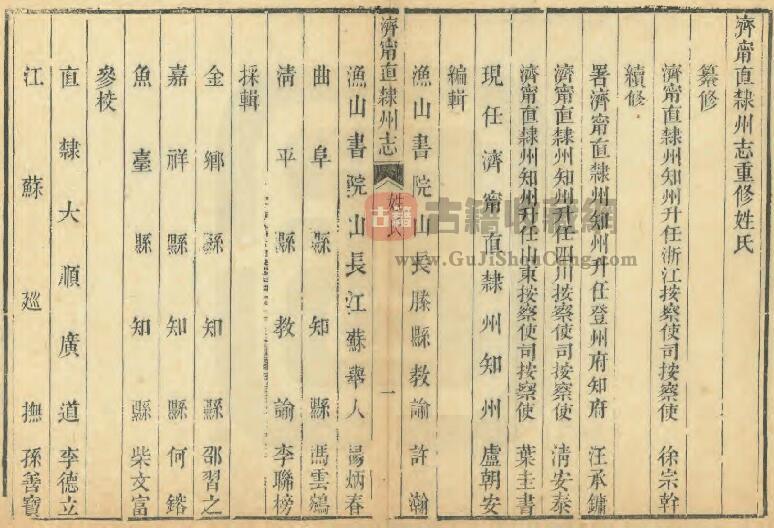 濟甯直隸州志重修姓氏
纂修
濟甯直隸州知州升任浙江按察使司按察使 徐宗幹
續修
署濟甯直隸州知州升任登州府知府 汪承鏞
濟甯直隸州知州升任四川按察使司按察使 清安泰
濟甯直隸州知州升任山東按察使司按察使 葉圭書
現任濟甯直隸州知州 盧朝安
編輯
漁山書院山長滕縣教諭 許瀚
濟甯直隸州志 姓氏 一
漁山書院山長江蘇舉人 楊炳春
曲阜縣知縣 馮雲鵷
清平縣教諭 李聯榜
採輯
金鄉縣知縣 邵習之
嘉祥縣知縣 何鎔
魚臺縣知縣 柴文富
參校
直隸大順廣道 李德立
江蘇巡撫 孫善寶
古籍
古籍收藏網
www.GuJiShouCang.com